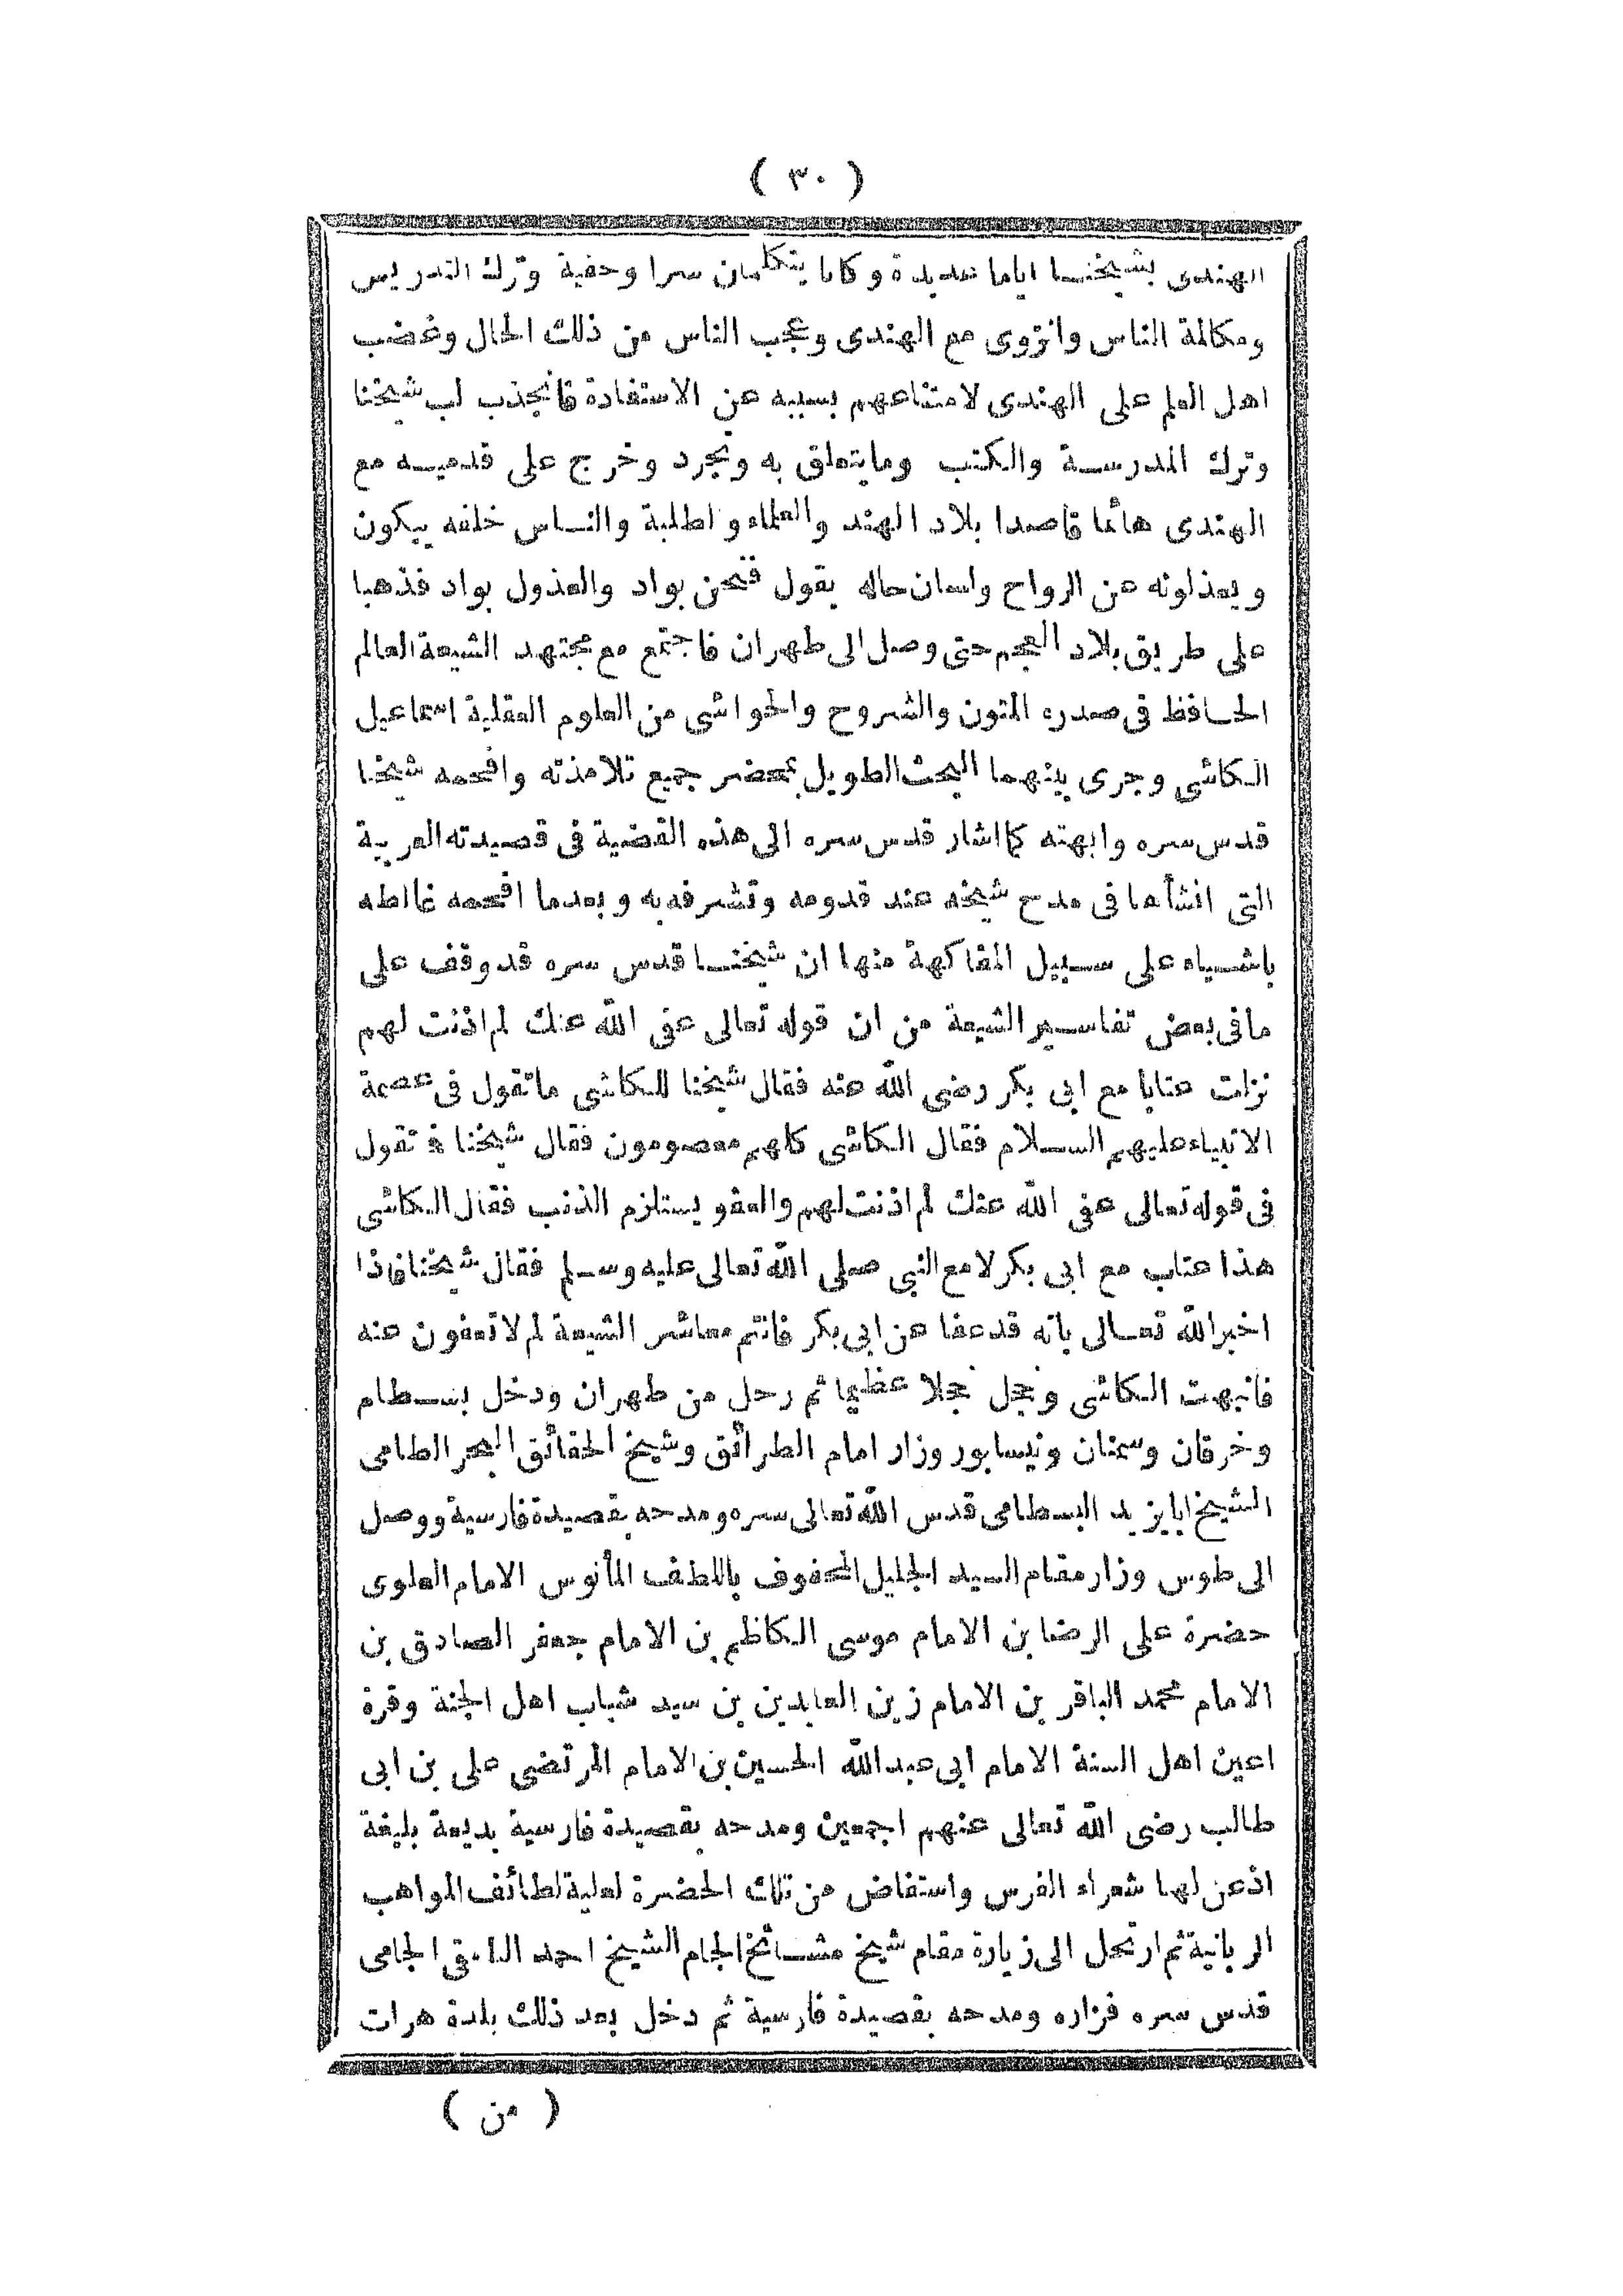 ( ٣٠ )
الهندى بشيخنا اياما عديدة وكانا يتكلمان سرا وخفية وترك التدريس
ومكالمة الناس وانزوى مع الهندى وعجب الناس من ذلك الحال وغضب
اهل العلم على الهندى لامتناعهم بسببه عن الاستفادة فانجذب لب شيخنا
وترك المدرسة والكتب ومايتعلق به وتجرد وخرج على قدميه مع
الهندى هائما قاصدا بلاد الهند والعلماء واطلبة والناس خلفه يبكون
ويعذلونه عن الرواح ولسان حاله يقول فنحن بواد والعذول بواد فذهبا
على طريق بلاد العجم حتى وصل الى طهران فاجتمع مع مجتهد الشيعة العالم
الحافظ فى صدره المتون والشروح والحواشى من العلوم العقلية اسماعيل
الكاشى وجرى بينهما البحث الطويل بمحضر جميع تلامذته وافحمه شيخنا
قدس سره وابهته كما اشار قدس سره الى هذه القضية فى قصيدته العربية
التى انشأها فى مدح شيخه عند قدومه وتشرفه به وبعدما افحمه غالطه
باشياء على سبيل المفاكهة منها ان شيخنا قدس سره قدوقف على
مافى بعض تفاسير الشيعة من ان قوله تعالى عفى الله عنك لم اذنت لهم
نزلت عتابا مع ابى بكر رضى الله عنه فقال شيخنا للكاشى ماتقول فى عصمة
الانبياء عليهم السلام فقال الكاشى كلهم معصومون فقال شيخنا فتقول
فى قوله تعالى عفى الله عنك لم اذنت لهم والعفو يستلزم الذنب فقال الكاشى
هذا عتاب مع ابى بكر لامع النبى صلى الله تعالى عليه وسلم فقال شيخنا فاذا
اخبر الله تعالى بانه قدعفا عن ابى بكر فانتم معاشر الشيعة لم لا تعفون عنه
فانبهت الكاشى وخجل خجلا عظيما ثم رحل من طهران ودخل بسطام
وخرقان وسمنان ونيسابور وزار امام الطرائق وشيخ الحقائق البحر الطامى
الشيخ ابايزيد البسطامى قدس الله تعالى سره ومدحه بقصيدة فارسية ووصل
الى طوس وزار مقام السيد الجليل المحفوف باللطف المأنوس الامام العلوى
حضرة على الرضا بن الامام موسى الكاظم بن الامام جعفر الصادق بن
الامام محمد الباقر بن الامام زين العابدين بن سيد شباب اهل الجنة وقرة
اعين اهل السنة الامام ابى عبدالله الحسين بن الامام المرتضى على بن ابى
طالب رضى الله تعالى عنهم اجمعين ومدحه بقصيدة فارسية بديعة بليغة
اذعن لها شعراء الفرس واستفاض من تلك الحضرة لعلية لطائف المواهب
الربانية ثم ارتحل الى زيارة مقام شيخ مشائخ الجام الشيخ احمد النامقى الجامى
قدس سره فزاره ومدحه بقصيدة فارسية ثم دخل بعد ذلك بلدة هرات
( من )